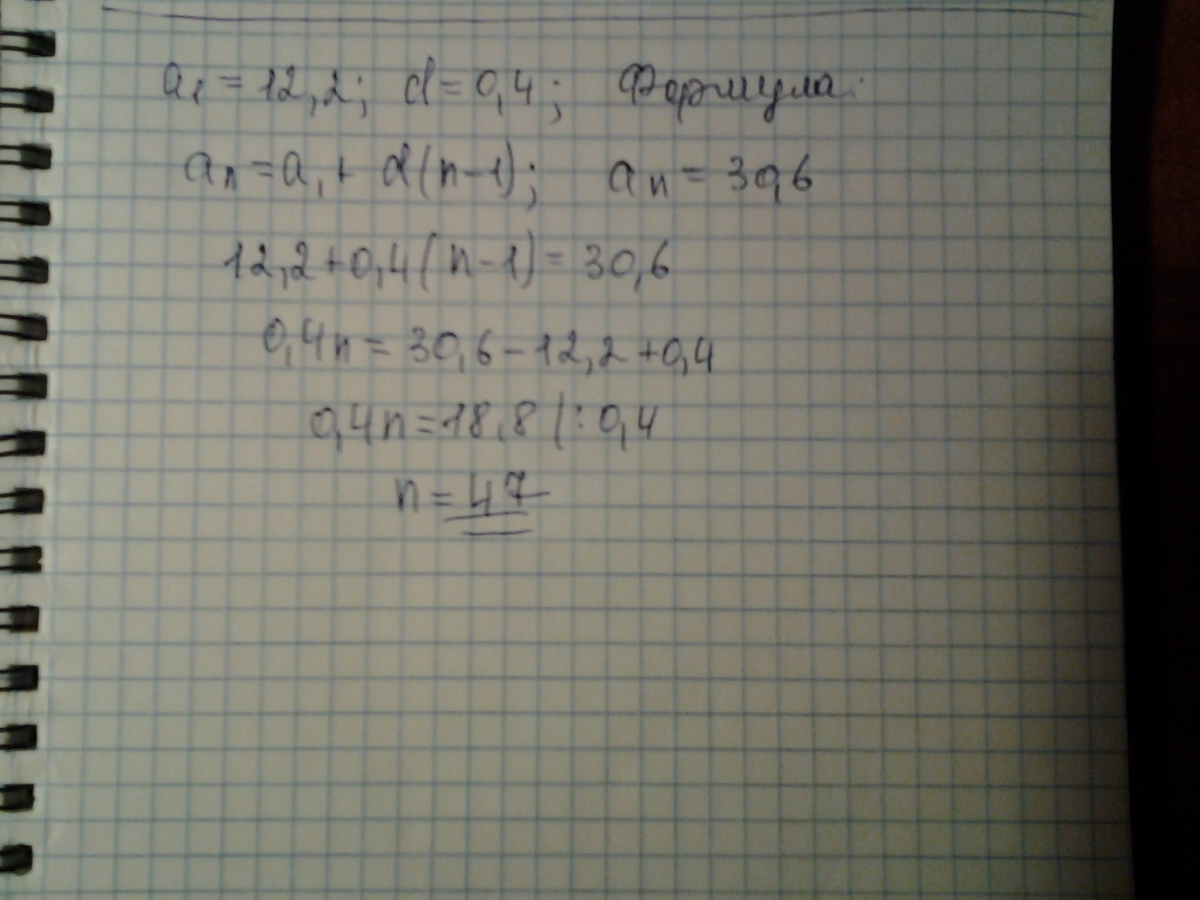 a₁ = 12,2; d = 0,4; Формула:
aₙ = a₁ + d(n-1); aₙ = 30,6
12,2+0,4(n-1) = 30,6
0,4n = 30,6-12,2+0,4
0,4n = 18,8 |:0,4
n = 47